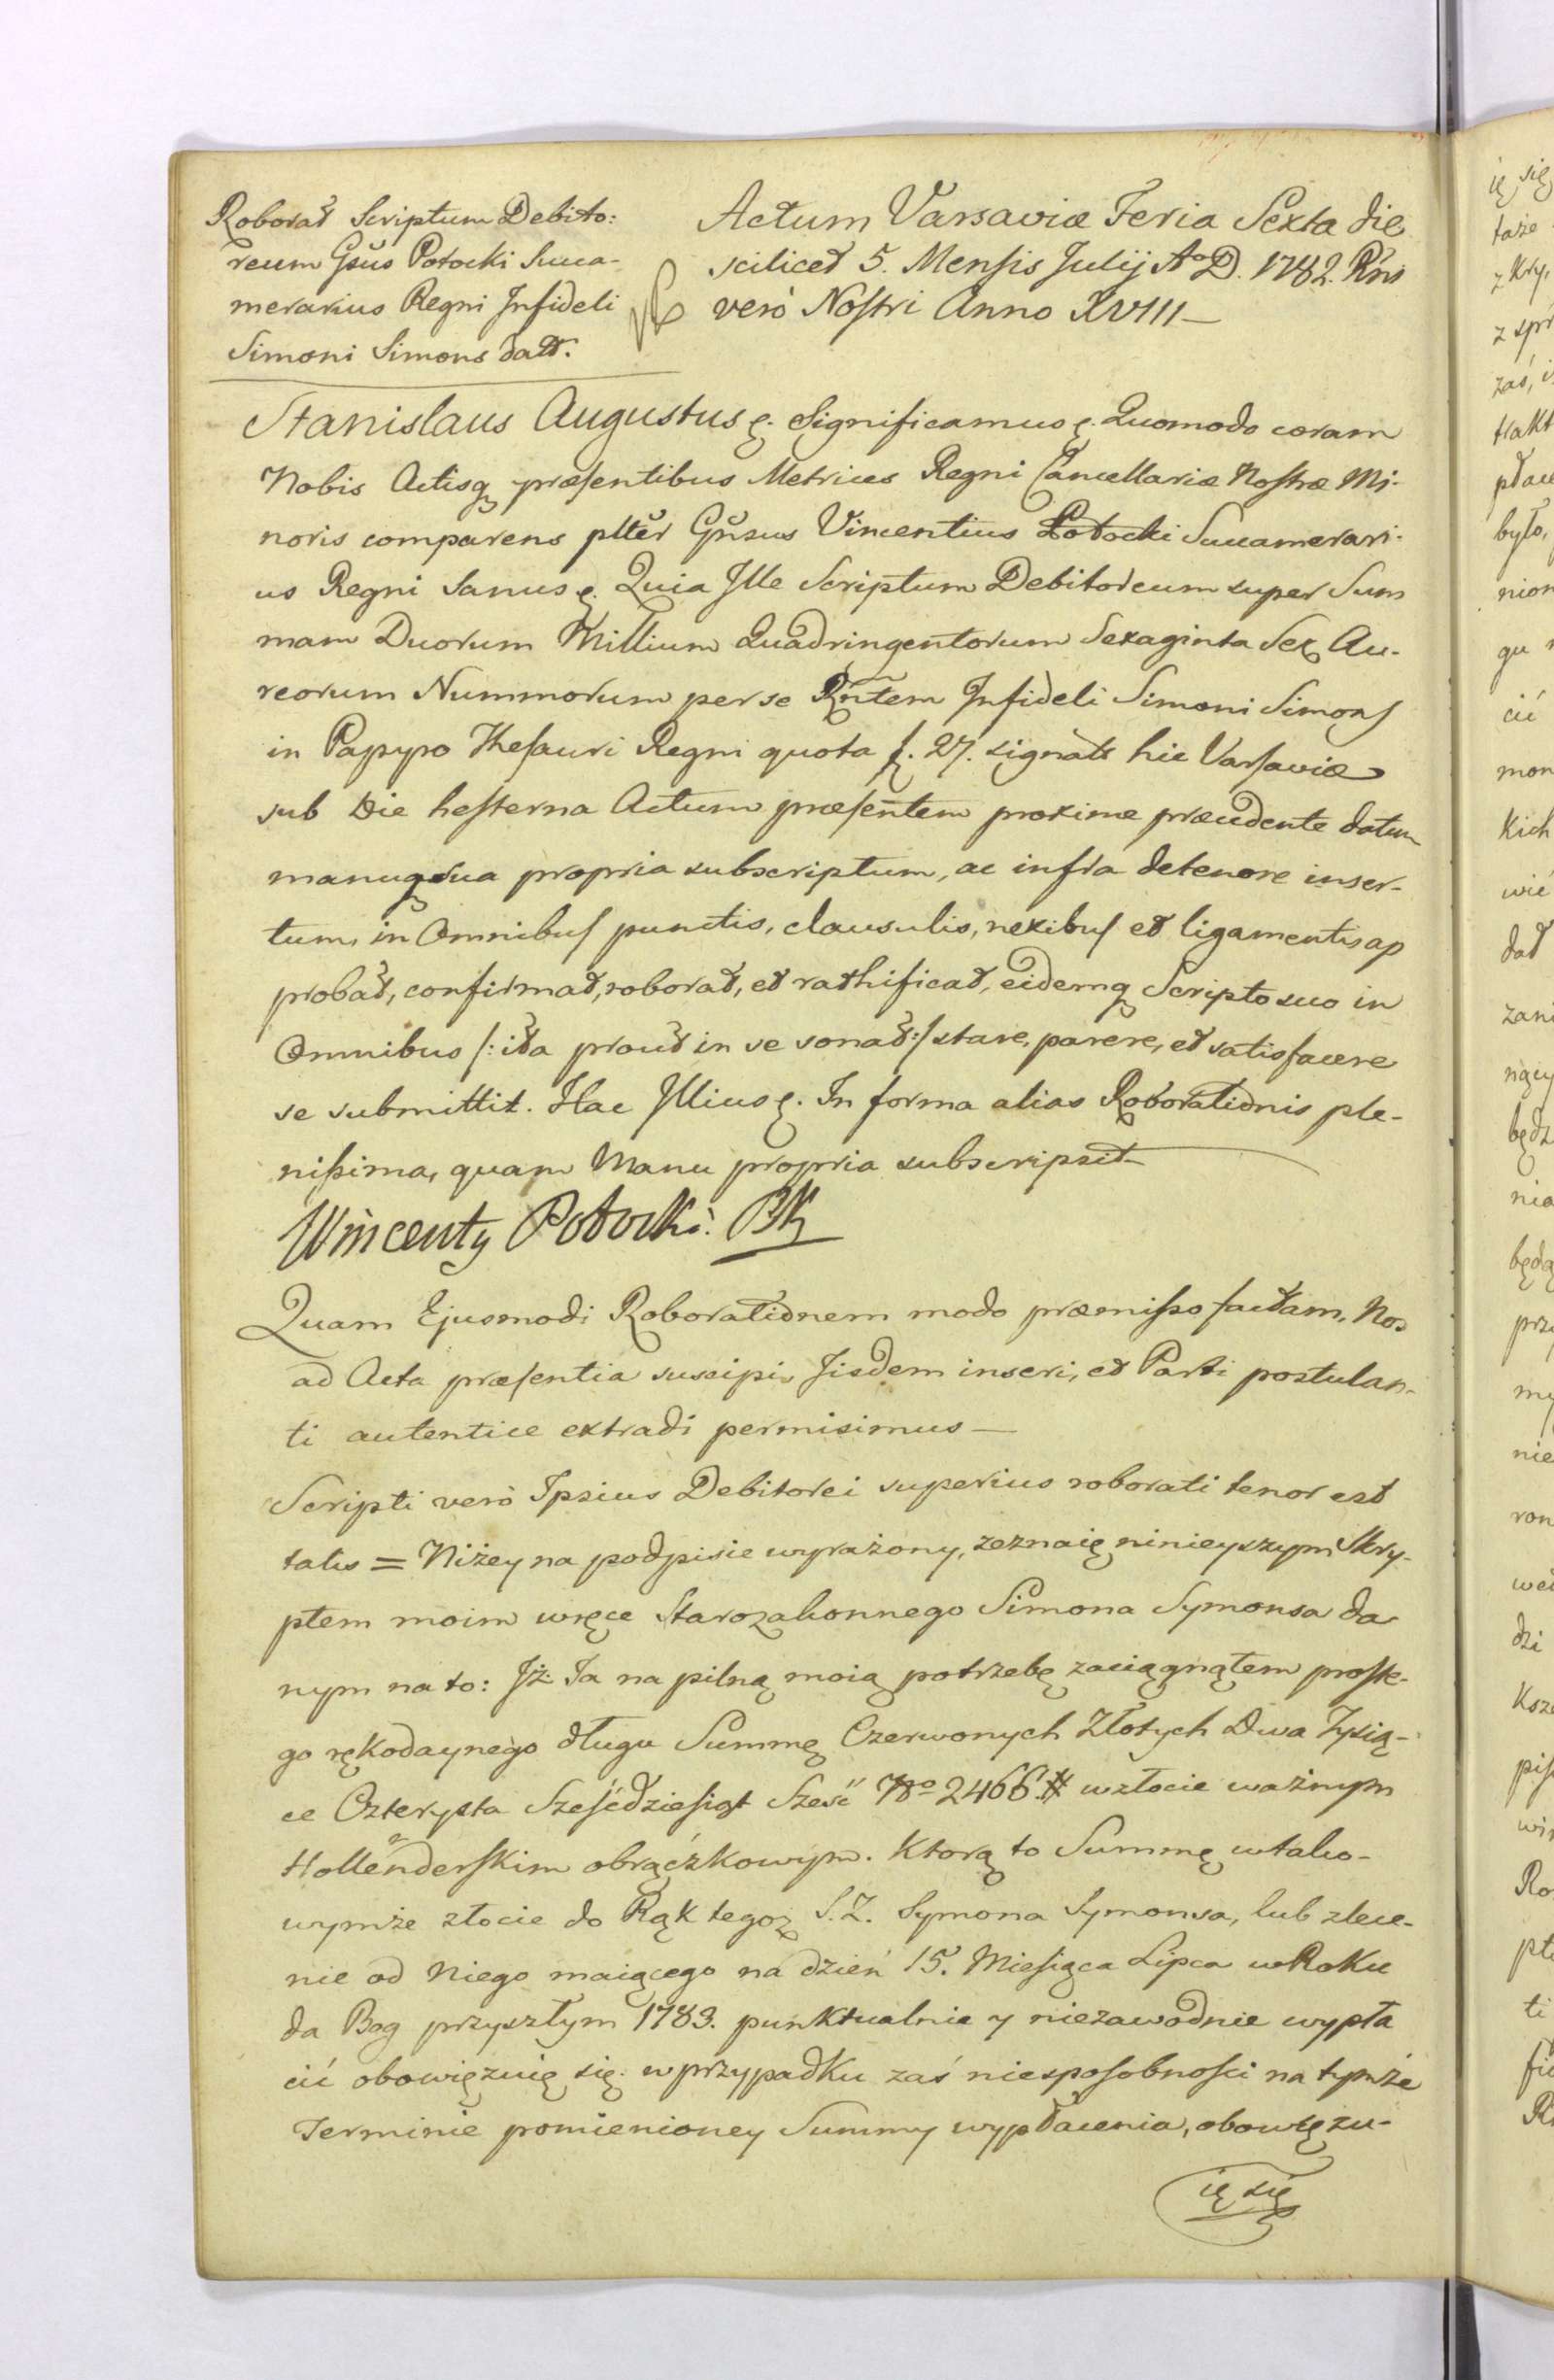 Roborat Scriptum Debito:
reum Gsus Potocki Succa-
merarius Regni Infideli
Simoni Simons datt.
Actum Varsaviæ Feria Sexta die
scilicet 5. Mensis Julij Ao D. 1782. Rni
verò Nostri Anno XVIII—
Stanislaus Augustus &. Significamus &. Quomodo coram
Nobis Actisq præsentibus Metrices Regni Cancellariæ Nostræ Mi-
noris comparens plter Gnsus Vincentius Potocki Succamerari-
us Regni Sanus &. Quia Ille Scriptum Debitoreum super Sum
mam Duorum Millium Quadringentorum Sexaginta Sex Au-
reorum Nummorum per se Rntem Infideli Simoni Simons
in Papyro Thesauri Regni quota f. 27. signato hic Varsaviæ
sub Die hesterna Actum præsentem proxime præcedente datum
manuq sua propria subscriptum, ac infra de tenore inser-
tum, in Omnibus punctis, clausulis, nexibus et ligamentis ap
probat, confirmat, roborat, et rathificat, eidemq Scripto suo in
Omnibus /: ita prout in se sonat :/ stare, parere, et satisfacere
se submittit. Hac Illius &. In forma alias Roborationis ple-
nissima, quam Manu propria subscripsit—
Wincenty Potocki. PK
Quam Ejusmodi Roborationem modo præmisso factam, Nos
ad Acta præsentia suscipi, Iisdem inseri, et Parti postulan-
ti autentice extradi permisimus—
Scripti verò Ipsius Debitorei superius roborati tenor est
talis = Niżey na podpisie wyrażony, zeznaię ninieyszym Skry-
ptem moim w ręce Starozakonnego Simona Symonsa da
nym na to: Iż Ja na pilną moią potrzebę zaciągnąłem proste-
go rękodaynego długu Summę Czerwonych Złotych Dwa Tysią-
ce Czterysta Sześćdziesiąt Sześć No 2466 # w złocie ważnym
Hollenderskim obrączkowym. Ktorą to Summę w tako-
wymże złocie do Rąk tegoż S. Z. Symona Symonsa, lub zlece-
nie od Niego maiącego na dzień 15. Miesiąca Lipca w Roku
da Bog przyszłym 1783. punktualnie y niezawodnie wypła
cić obowięzuię się. w przypadku zaś niesposobności na tymże
Terminie pomienioney Summy wypłacenia, obowięzu-
ię się